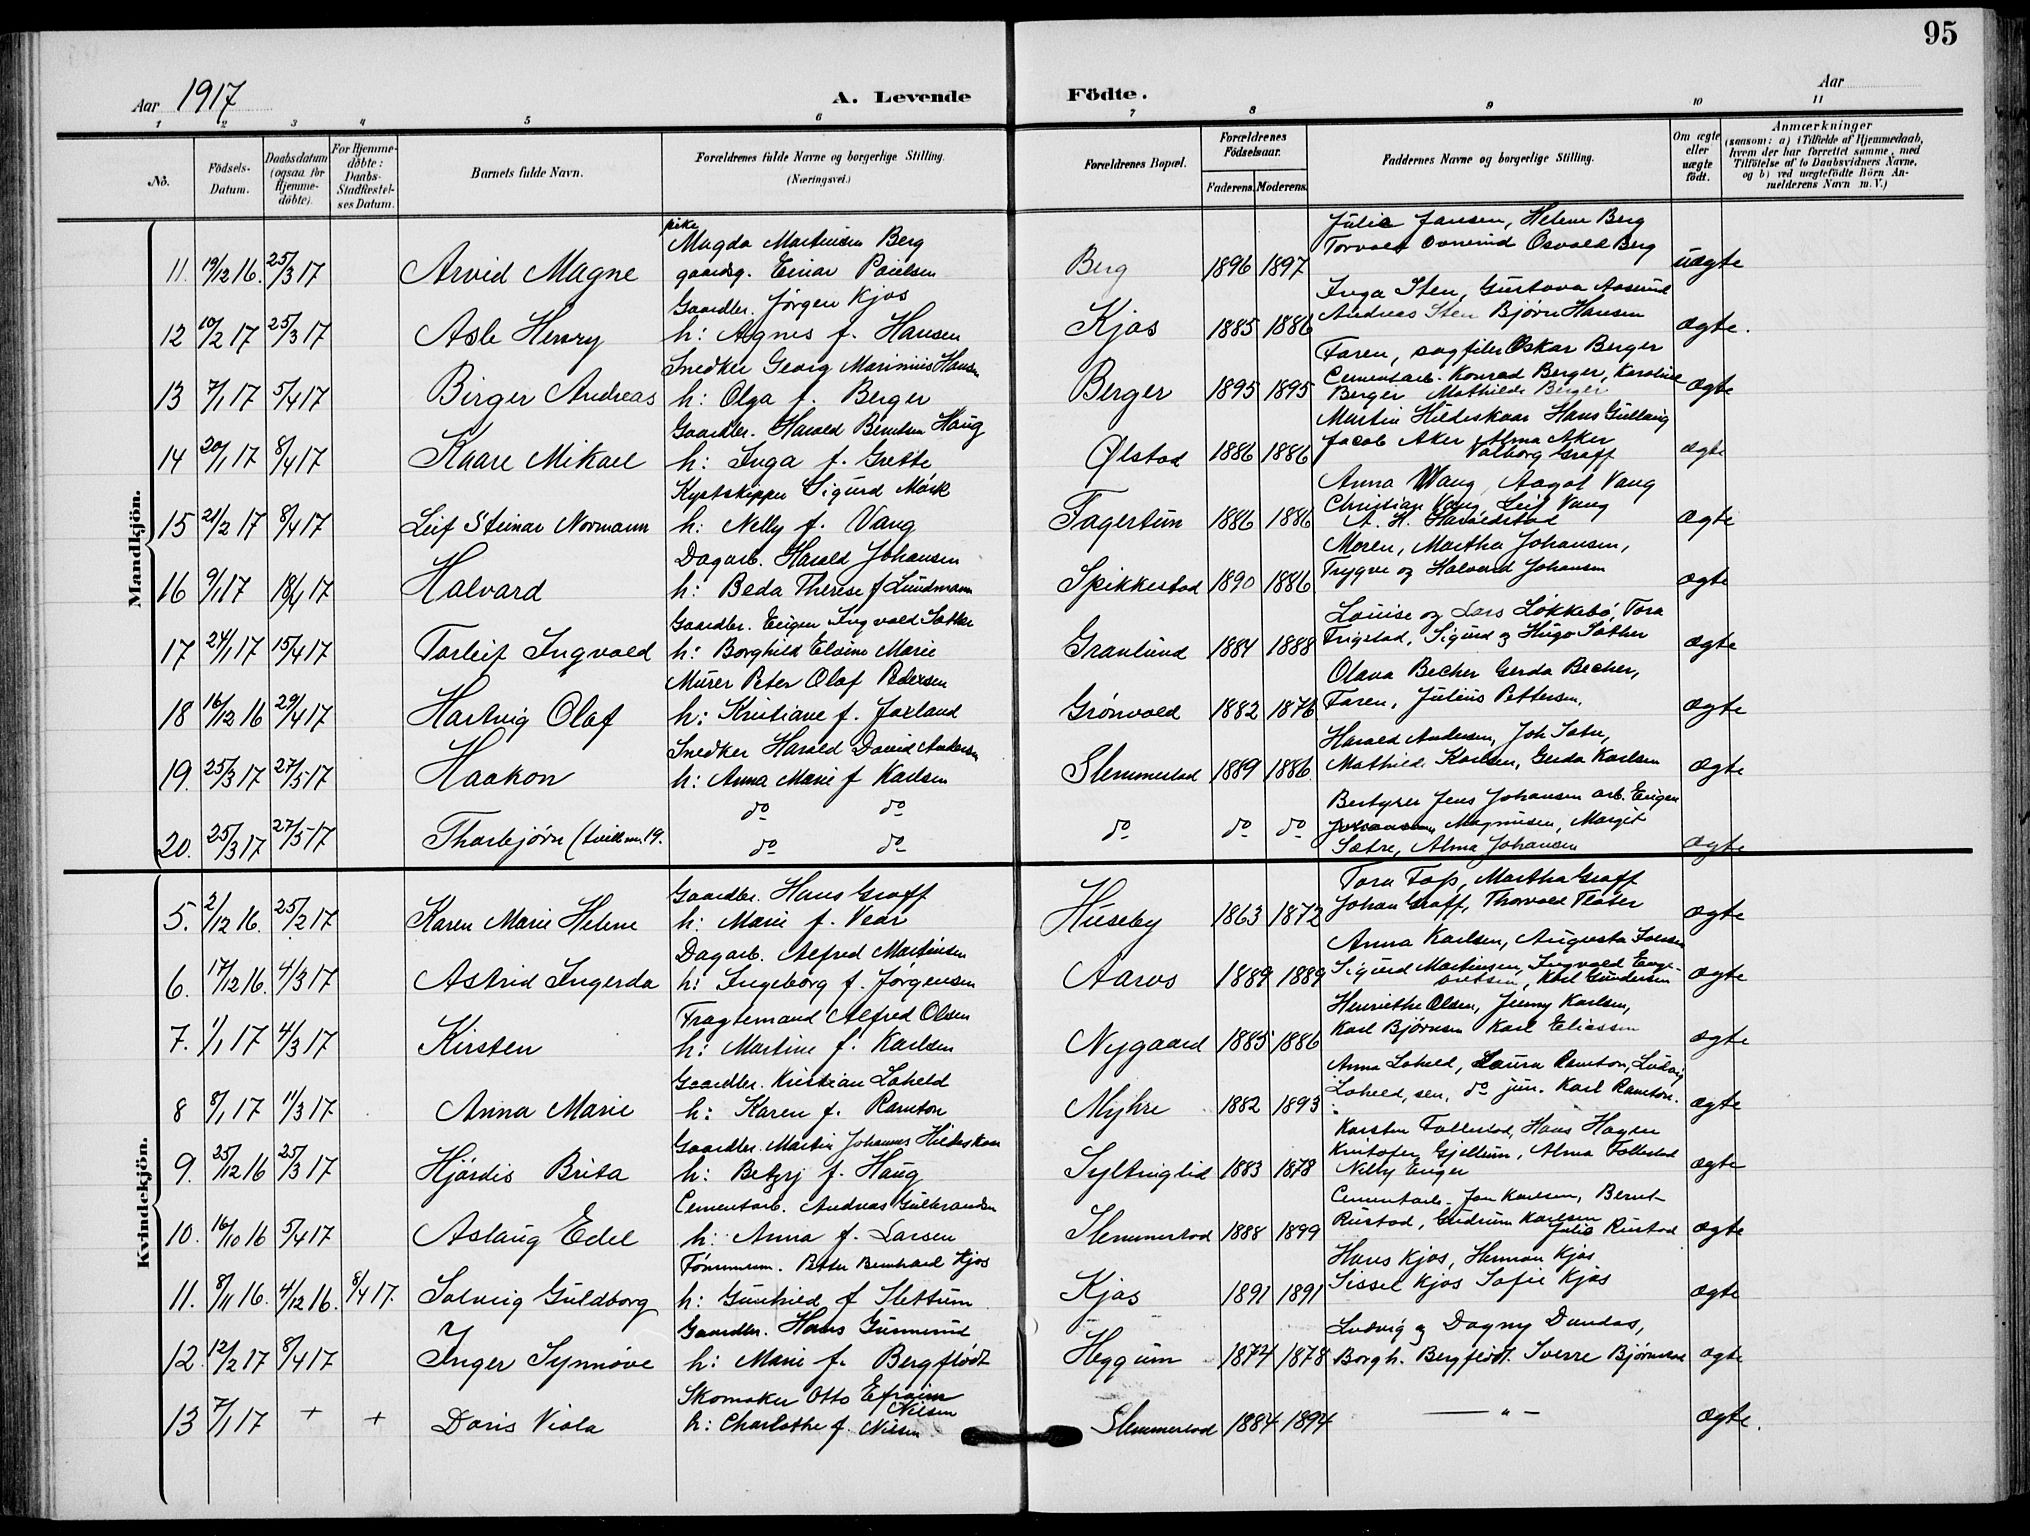 95
Aar 1917
A. Levende
Födte.
Aar
1 2 3 4 5 6 7 8 9 10 11
No.
Födsels-Datum.
Daabsdatum (ogsaa for Hjemme-döbte).
For Hjemme-döbte: Daabs-Stadfæstel-ses Datum.
Barnets fulde Navn.
Forældrenes fulde Navne og borgerlige Stilling. (Næringsvei.)
Forældrenes Bopæl.
Forældrenes Födselsaar.
Faderens. Moderens.
Faddernes Navne og borgerlige Stilling.
Om ægte eller uægte födt.
Anmærkninger
(saasom: a) i Tilfælde af Hjemmedaab, hvem der har forrettet samme, med Tilföielse af to Daabsvidners Navne, og b) ved uægtefödte Börn An-melderens Navn m. V.)
Mandkjön.
pike
Magda Martinsen Berg
Julie Jansen, Helene Berg
11. 19/12 16. 25/3 17 Arvid Magne gaardsg. Einar Paulsen Berg 1896 1897 Osvald Berg uægte
Gaardbr. Jørgen Kjos
Inga Sten, Gustava Aaserud
12 10/2 17 25/3 17 Asle Henry h: Agnes f. Hansen Kjos 1885 1886 Andreas Sten Bjørn Hansen ægte.
Snedker Georg Marinius Hansen
Faren, sagfiler Oskar Berger
13 7/1 17 5/4 17 Birger Andreas h: Olga f. Berger Berger 1895 1895 Cementarb. Konrad Berger, Karoline ægte
Berger Mathilde Berger
Gaardbr. Harald Berntsen Haug
Martin Hildeskaar Hans Gullaug
14 20/1 17 8/4 17 Kaare Mikael h: Inga f. Grette Ølstad 1886 1886 Jacob Aker Alma Aker ægte
Valborg Graff
Kystskipper Sigurd Mörk
Anna Wang, Aagot Vang
15 21/2 17 8/4 17 Leif Steinar Normann h: Nelly f. Vang Fagertun 1886 1886 Christian Vang, Leif Vang ægte
A. H. Haraldstad
Dagarb. Harald Johansen
Moren, Martha Johansen,
16 9/1 17 18/4 17 Halvard h: Beda Therese f Lundmann Spikkestad 1890 1886 Trygve og Halvard Johansen ægte
Gaardbr. Eugen Ingvald Sæther
Louise og Lars Løkkebö, Tora
17 24/1 17 15/4 17 Torleif Ingvald h: Borghild Elvine Marie Granlund 1884 1888 Frigstad, Sigurd og Hugo Sæther ægte
Murer Peter Olaf Pedersen
Olava Becher Gerda Becher,
18 16/12 16 29/4 17 Hartvig Olaf h: Kristiane f. Joxland Grönvold 1882 1876 Faren, Julius Pettersen. ægte
Snedker Harald David Andersen
Harald Andersen, Joh Sætre,
19. 25/3 17 27/5 17 Haakon h: Anna Marie f Karlsen Slemmestad 1889 1886 Mathilde Karlsen, Gerda Karlsen ægte
do do
Bestyrer Jens Johansen arb. Eugen
20. 25/3 17 27/5 17 Thorbjørn (tvill. m. 19. do do do do do Magnusen, Margit
Sætre, Alma Johansen ægte
Kvindekjön.
Gaardbr. Hans Graff
Tora Fos, Martha Graff
5. 2/12 16. 25/2 17 Karen Marie Helene h: Marie f. Vear Huseby 1863 1872 Johan Graff, Thorvald Flåter ægte
Dagarb. Alfred Martinsen
Anna Karlsen, Augusta
6. 17/12 16. 4/3 17 Astrid Ingerda h: Ingeborg f. Jørgensen Aaros 1889 1889 Sigurd Martinsen, Ingvald Enge- ægte
bretsen, Karl Gundersen
Fragtemand Alfred Olsen
Henriethe Olsen, Jenny Karlsen,
7. 1/1 17 4/3 17 Kirsten h: Martine f. Karlsen Nygaard 1885 1886 Karl Bjørnsen Karl Eliassen ægte
Gaardbr. Kristian Loheld
Anna Loheld, Laura Ramton, Ludvig
8 8/1 17 11/3 17 Anna Marie h: Karen f. Ramton Myhre 1882 1893 Loheld, sen. do jun. Karl Ramton. ægte
Gaardbr. Martin Johannes Hildeskaar
Karsten Follestad, Hans Hagen
9. 25/12 16 25/3 17 Hjördis Brita h: Betzy f. Haug Syltinglid 1883 1878 Kristofer Gjellum, Alma Follestad ægte
Nelly Enger
Cementarb. Andreas Gulbrandsen
Cementarb. Jon Karlsen, Bernt
10. 16/10 16 5/4 17 Aslaug Edel h: Anna f. Larsen Slemmestad 1888 1899 Rustad, Gudrun Karlsen ægte
Julie Rustad
Tömmerm. Petter Bernhard Kjos
Hans Kjos, Herman Kjos
11. 8/11 16. 4/12 16. 8/4 17. Solveig Guldborg h: Gunhild f Slettum Kjos 1891 1891 Sissel Kjos Sofie Kjos ægte
Gaardbr. Hans Gunnerud
Ludvig og Dagny Dundas,
12. 12/2 17 8/4 17 Inger Synnöve h: Marie f. Bergflödt Heggum 1874 1878 Borgh. Bergflödt. Sverre Bjørnstad ægte
Skomaker Otto Efraim
Nilsen
13 7/1 17 + + Doris Viola h: Charlothe f. Nilsen Slemmestad 1884 1894 — " — ægte.